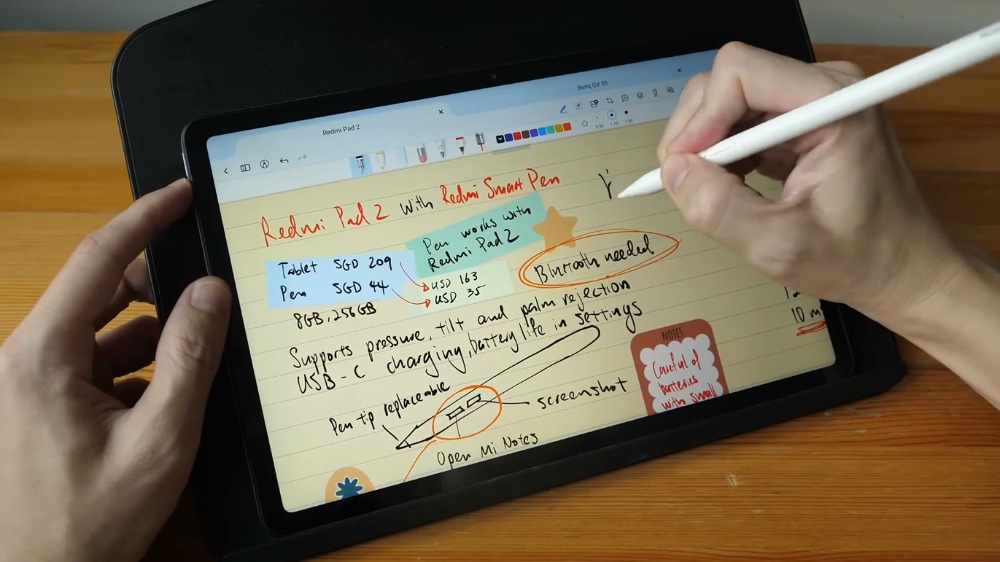 Redmi Pad 2
Benq GV50
Redmi Pad 2 with Redmi Smart Pen
Tablet SGD 209
Pen SGD 44
Pen works with
Redmi Pad 2
USD 163
USD 35
Bluetooth needed
8GB, 256GB
Supports pressure, tilt and palm rejection
USB-C charging, battery life in settings
Pen tip replaceable
screenshot
Open Mi Notes
NOTES
Careful of
batteries
with small
10 m